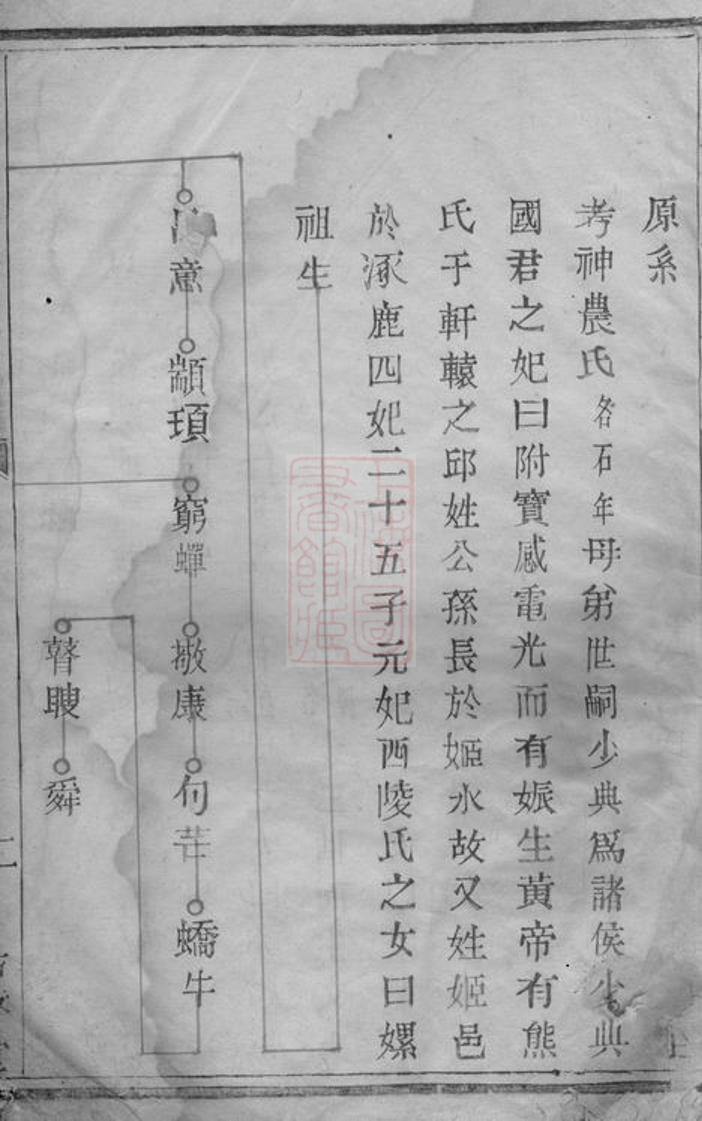 原系
考神農氏名石年母弟世嗣少典爲諸侯少典
國君之妃曰附寶感電光而有娠生黃帝有熊
氏于軒轅之邱姓公孫長於姬水故又姓姬邑
於涿鹿四妃二十五子元妃西陵氏之女曰嫘
祖生
意 顓頊 窮蟬 敬康 句芒 蟜牛
瞽瞍 舜